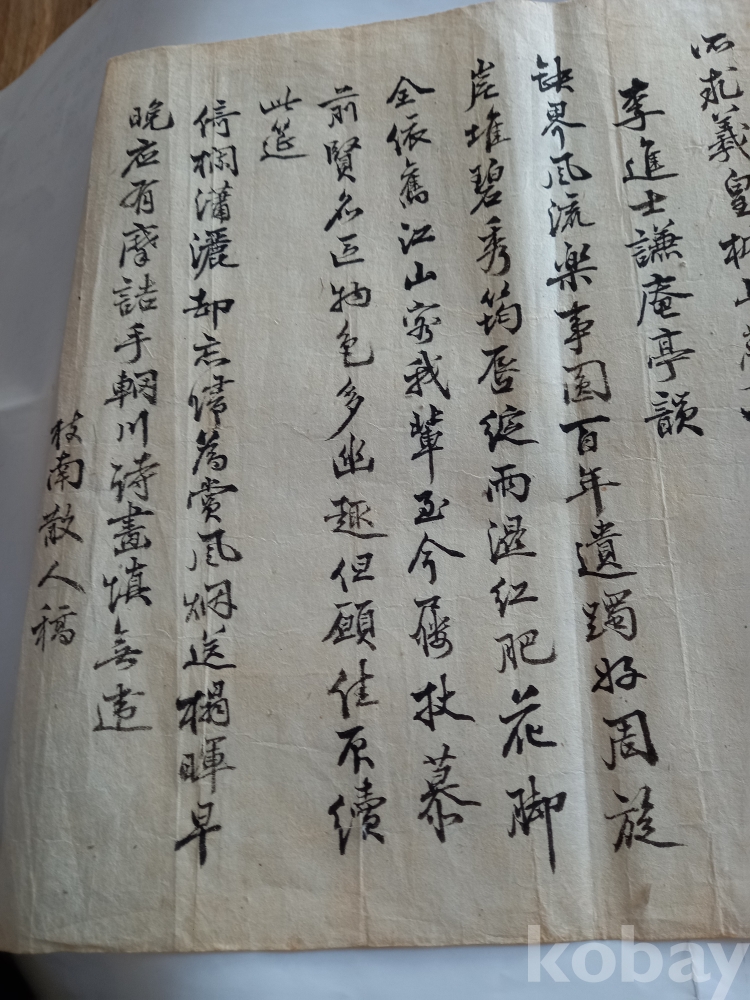 羲皇枕上
李進士謙庵亭韻
缺界風流楽事圓百年遺躅好周旋
堆碧秀筠唇綻雨濕紅肥花脚
全依舊江山容我輩至今屨杖慕
前賢名區物色多幽趣但願佳續
此筵
倚欄瀟灑却忘歸為賞風烟送榻暉早
晩应有摩詰手輞川詩畫慎無違
枝南散人稿
kobay